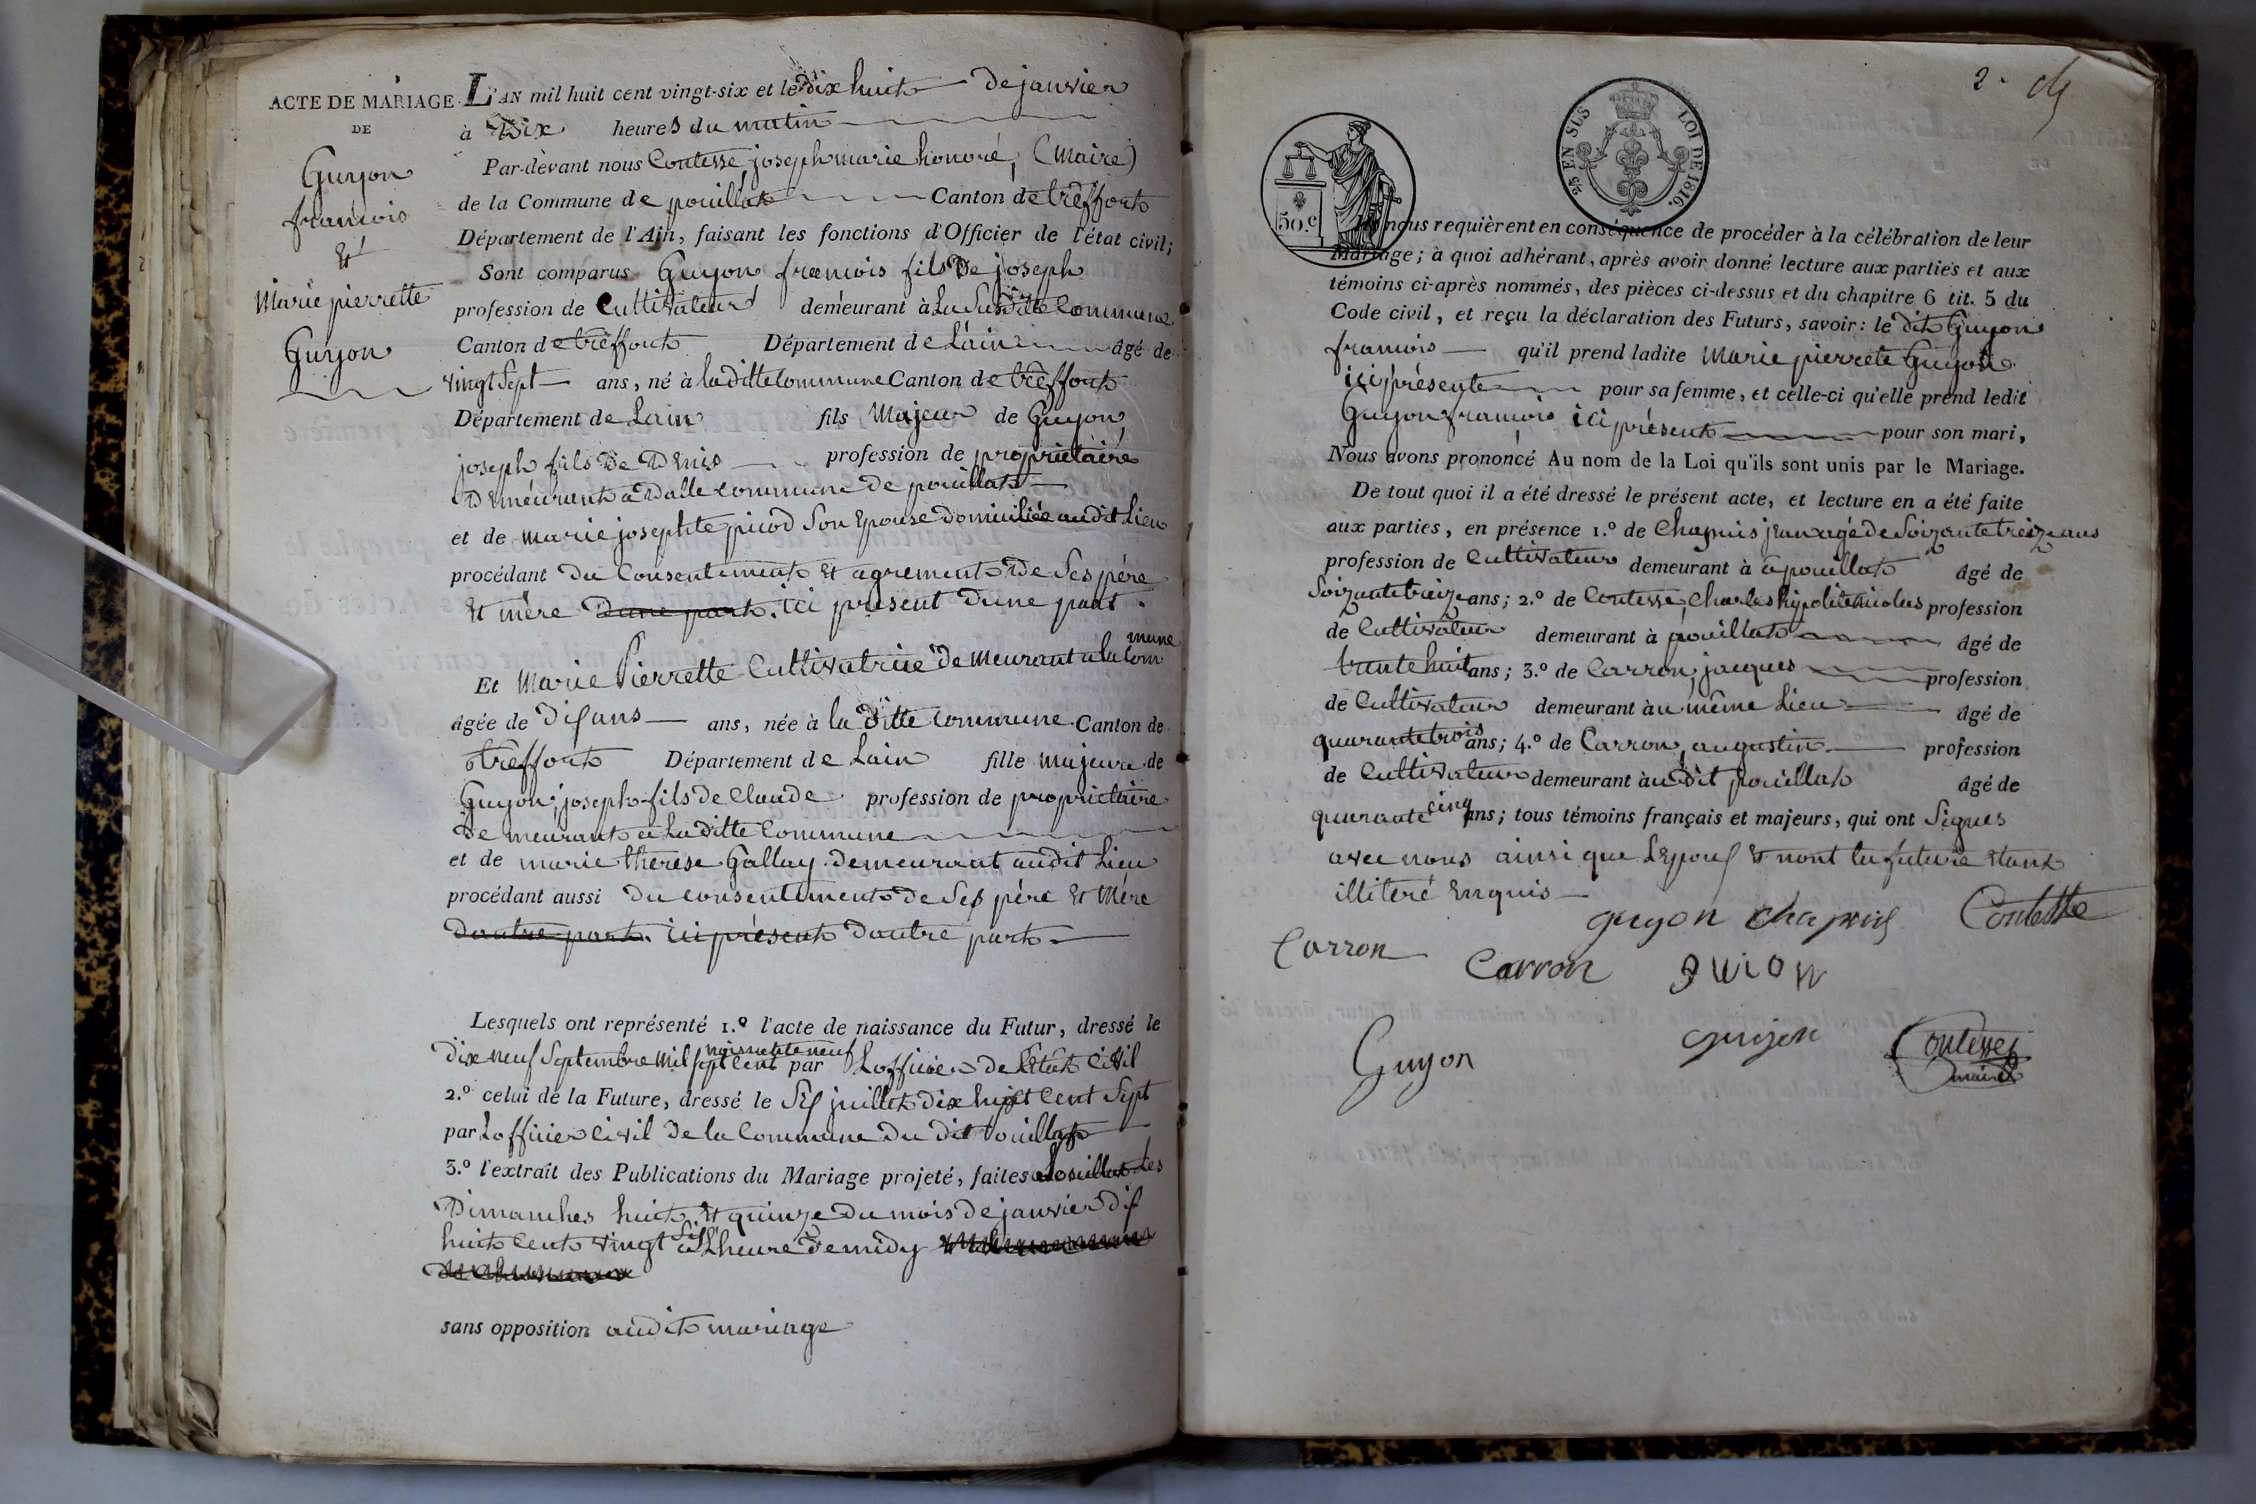 ACTE DE MARIAGE
DE
Guyon
francois
Et
Marie pierrette
Guyon
L'AN mil huit cent vingt-six et le dix huit de janvier
à Dix heures du matin
Par-devant nous Contesse, joseph marie honoré, (Maire)
de la Commune de pouillat Canton de treffort
Département de l'Ain, faisant les fonctions d'Officier de l'état civil;
Sont comparus Guyon francois fils De joseph
profession de Cultivateur demeurant à La Susditte Commune
Canton de treffort Département de L'ain âgé de
vingt Sept ans, né à la ditte Commune Canton de treffort
Département de Lain fils Majeur de Guyon,
joseph fils De Denis profession de propriétaire
Demeurant a Dalle commune de pouillat
et de marie josephte picod Son Epouse Domiciliée audit Lieu
procédant du Consentement Et agrement De Ses père
Et mère Dune part. ici présent Dune part.
Et Marie Pierrette Cultivatrice de meurant a la Com
mune
âgée de Dis ans ans, née à la ditte Commune Canton de
treffort Département de Lain fille majeure de
Guyon, joseph fils de Claude profession de propriétaire
De meurant a La Ditte Commune
et de marie therese Gallay demeurant audit Lieu
procédant aussi du consentement de Ses père Et Mère
Dautre part. ici présent Dautre part
Lesquels ont représenté 1.º l'acte de naissance du Futur, dressé le
Dix neuf Septembre Mil Sept Cent par Lofficier de Letat Civil
2.º celui de la Future, dressé le Sis juillet dix huit Cent Sept
par Lofficier Civil De la Commune Du dit Pouillat
3.º l'extrait des Publications du Mariage projeté, faites a Pouillat Les
Dimanches huit Et quinze Du mois De janvier Dis
huit Cent vingt Sis a Lheure De midy
sans opposition audit mariage
2.
50.c
25 EN SUS LOI DE 1816.
nous requièrent en conséquence de procéder à la célébration de leur
Mariage; à quoi adhérant, après avoir donné lecture aux parties et aux
témoins ci-après nommés, des pièces ci-dessus et du chapitre 6 tit. 5 du
Code civil, et reçu la déclaration des Futurs, savoir: le dit Guyon
francois qu'il prend ladite Marie pierrete Guyon
ici présente pour sa femme, et celle-ci qu'elle prend ledit
Guyon francois ici présent pour son mari,
Nous avons prononcé Au nom de la Loi qu'ils sont unis par le Mariage.
De tout quoi il a été dressé le présent acte, et lecture en a été faite
aux parties, en présence 1.º de Chapuis jean agé de Soizante treize ans
profession de Cultivateur demeurant à a pouillat âgé de
Soizante treize ans; 2.º de Contesse, Charles hipolite nicolas profession
de Cultivateur demeurant à pouillat âgé de
trente huit ans; 3.º de Carron, jacques profession
de Cultivateur demeurant à u même Lieu âgé de
quarante trois ans; 4.º de Carron, augustin profession
de Cultivateur demeurant à u Dit pouillat âgé de
quarante cinq ans; tous témoins français et majeurs, qui ont Signés
avec nous ainsi que Lepous Et nont la future Etant
illiteré Enquis
guyon chapuis Contesse
Carron Carron guion
Guyon guyon Contesse
maire